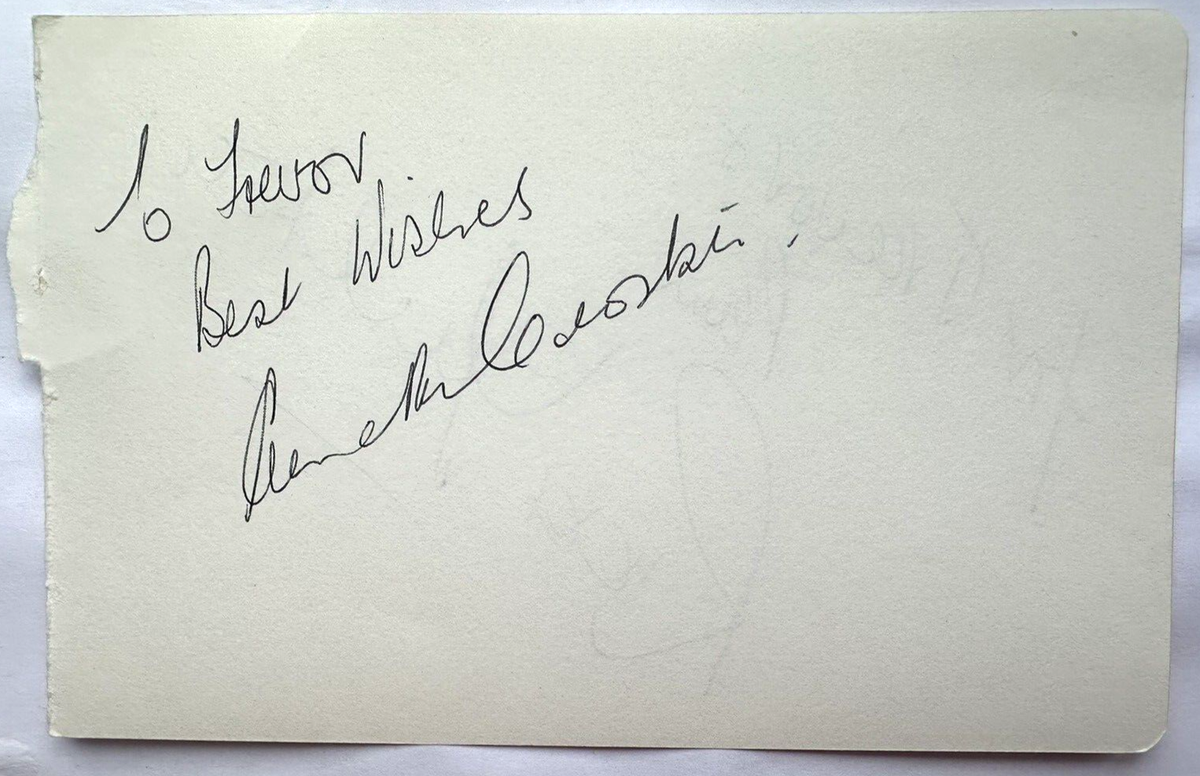 To Trevor
Best Wishes
Annette Crosbie.